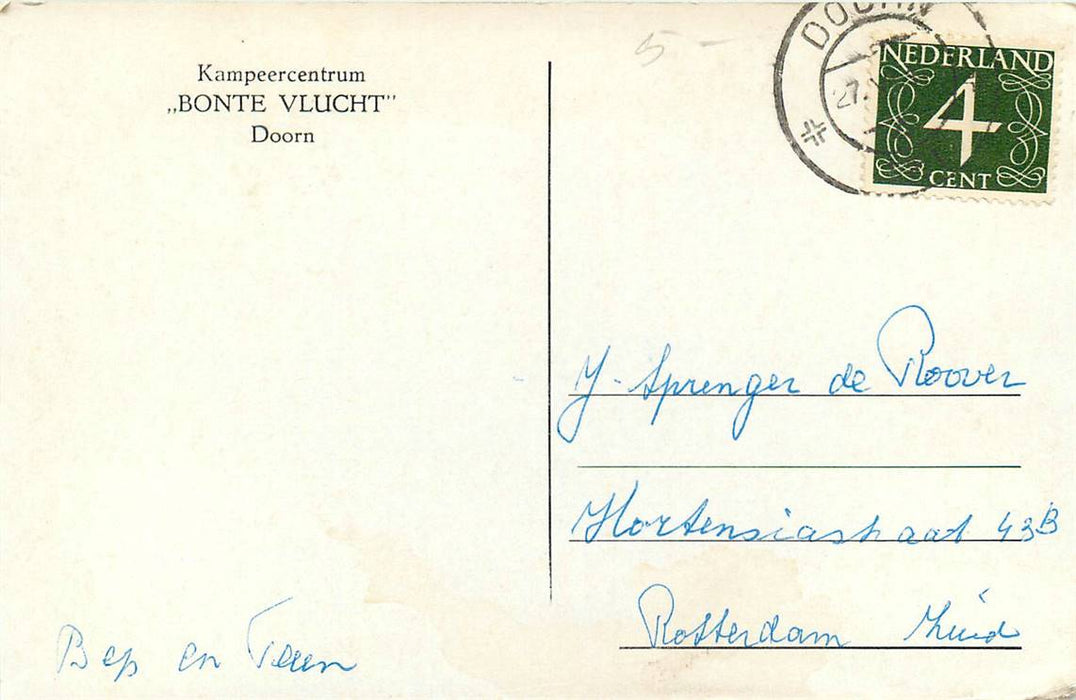 Kampeercentrum
„BONTE VLUCHT”
Doorn
5 -
DOORN
27
NEDERLAND
4
CENT
J. Sprenger de Roover
Hortensiastraat 43B
Rotterdam Zuid
Bep en Teun